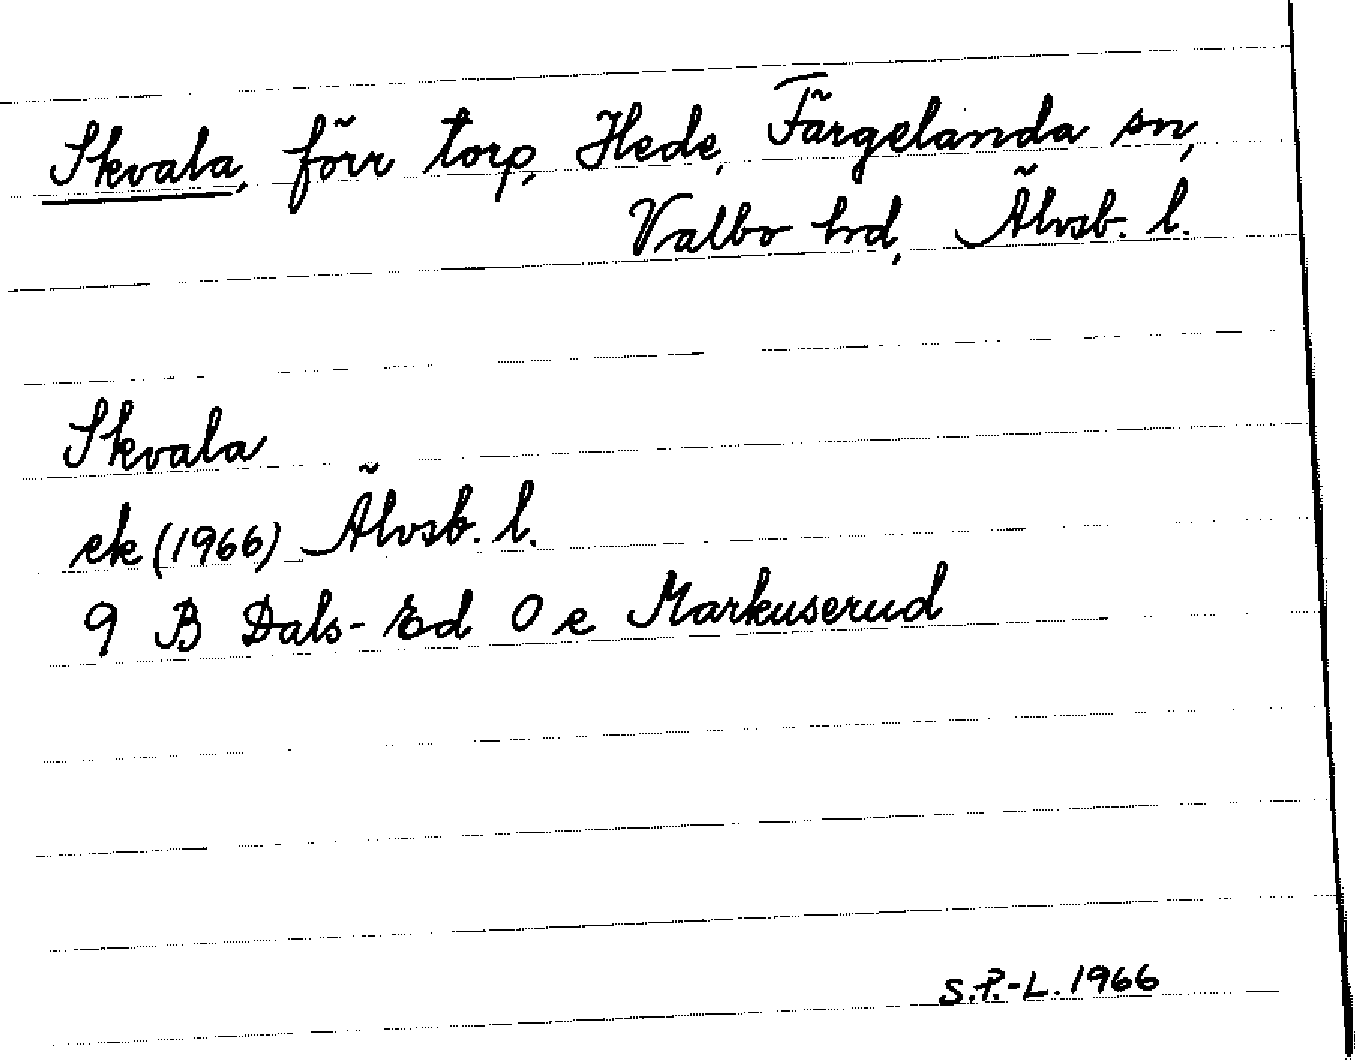 Skvala, förr torp, Hede, Färgelanda sn,
Valbo hrd, Älvsb. l.
Skvala
ek (1966) Älvsb. l.
9 B Dals-Ed O e Markuserud
S.P.-L. 1966